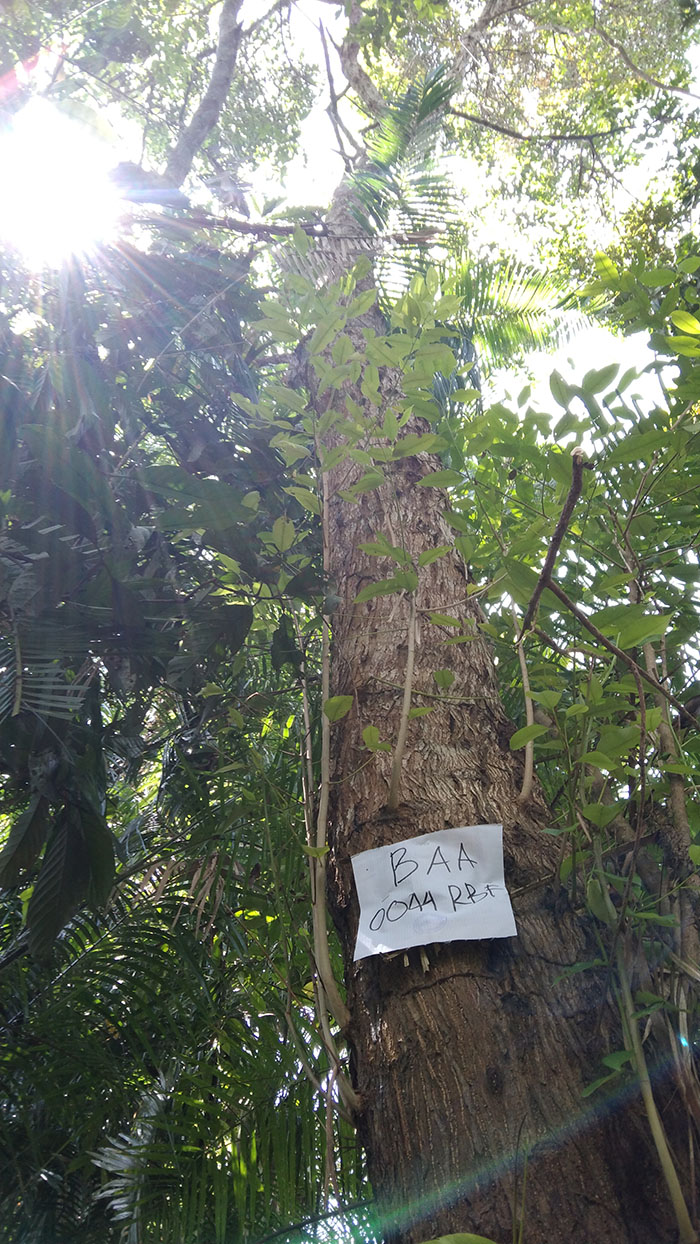 BAA
0044 RBF